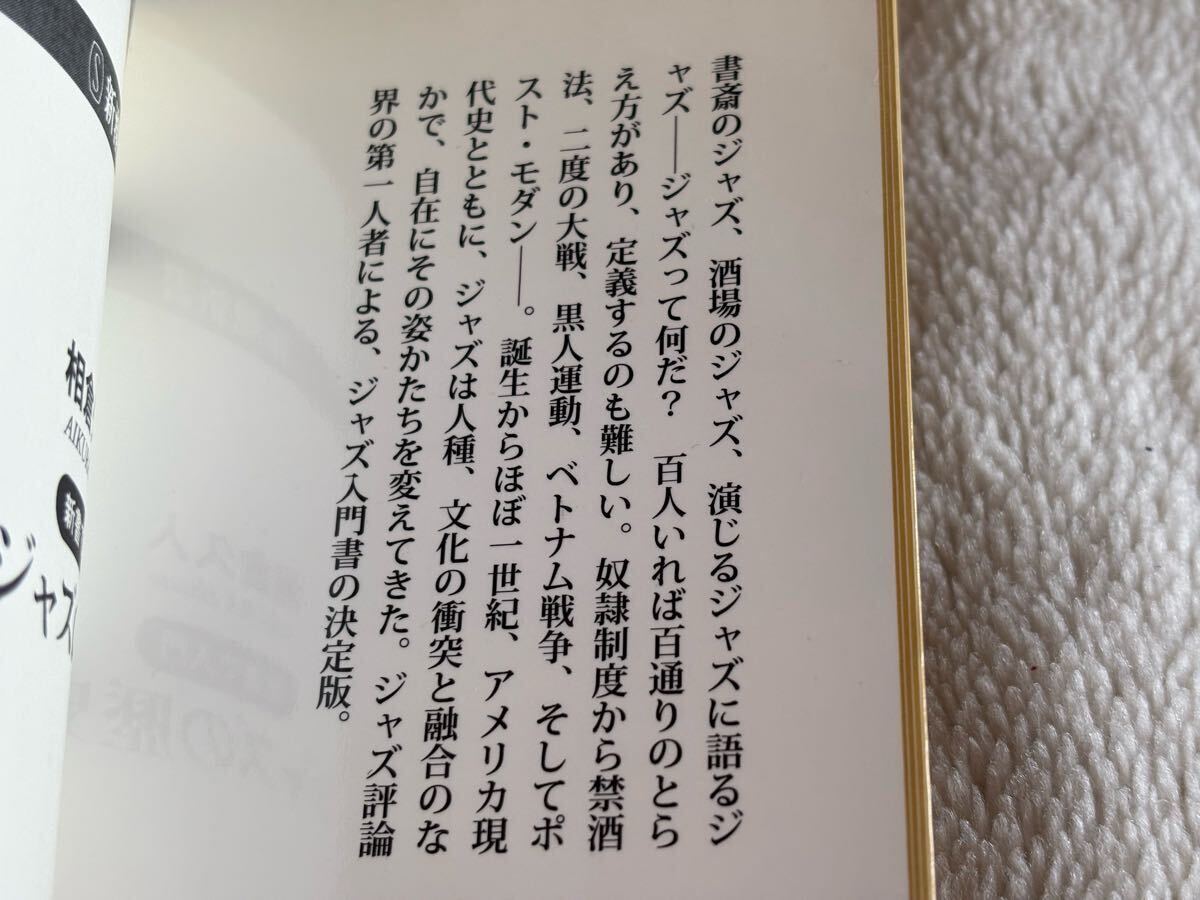 書斎のジャズ、酒場のジャズ、演じるジャズに語るジ
ャズ――ジャズって何だ？　百人いれば百通りのとら
え方があり、定義するのも難しい。奴隷制度から禁酒
法、二度の大戦、黒人運動、ベトナム戦争、そしてポ
スト・モダン――。誕生からほぼ一世紀、アメリカ現
代史とともに、ジャズは人種、文化の衝突と融合のな
かで、自在にその姿かたちを変えてきた。ジャズ評論
界の第一人者による、ジャズ入門書の決定版。
Ⓢ新
相倉
AIKU
新書
ジャズ